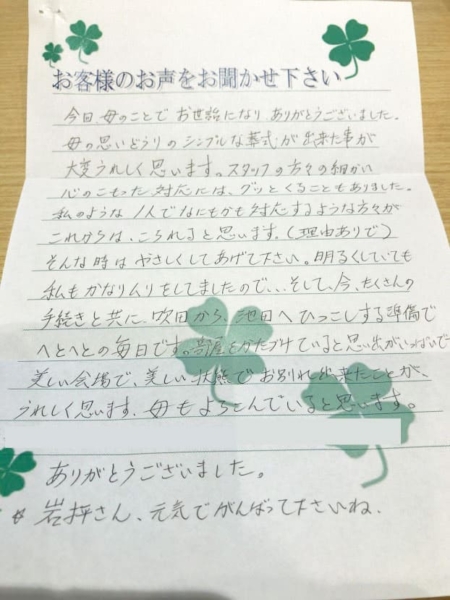 お客様のお声をお聞かせ下さい
今回 母のことで お世話になり ありがとうございました。
母の思いどうりの シンプルな葬式が 出来た事が
大変うれしく思います。スタッフの方々の細かい
心のこもった 対応には、グッと くることもありました。
私のような 1人でなにもかも対応するような方々が
これからは、こられると思います。(理由ありで)
そんな時は やさしくしてあげて下さい。明るくしていても
私もかなりムリをしてましたので、、、そして、今、たくさんの
手続きと共に、吹田から、池田へひっこしする準備で
へとへとの毎日です。部屋をかたづけていると思い出がいっぱいで
美しい会場で、美しい状態でお別れ出来たことが、
うれしく思います。母もよろこんでいると思います。
ありがとうございました。
岩坪さん、元気でがんばって下さいね。